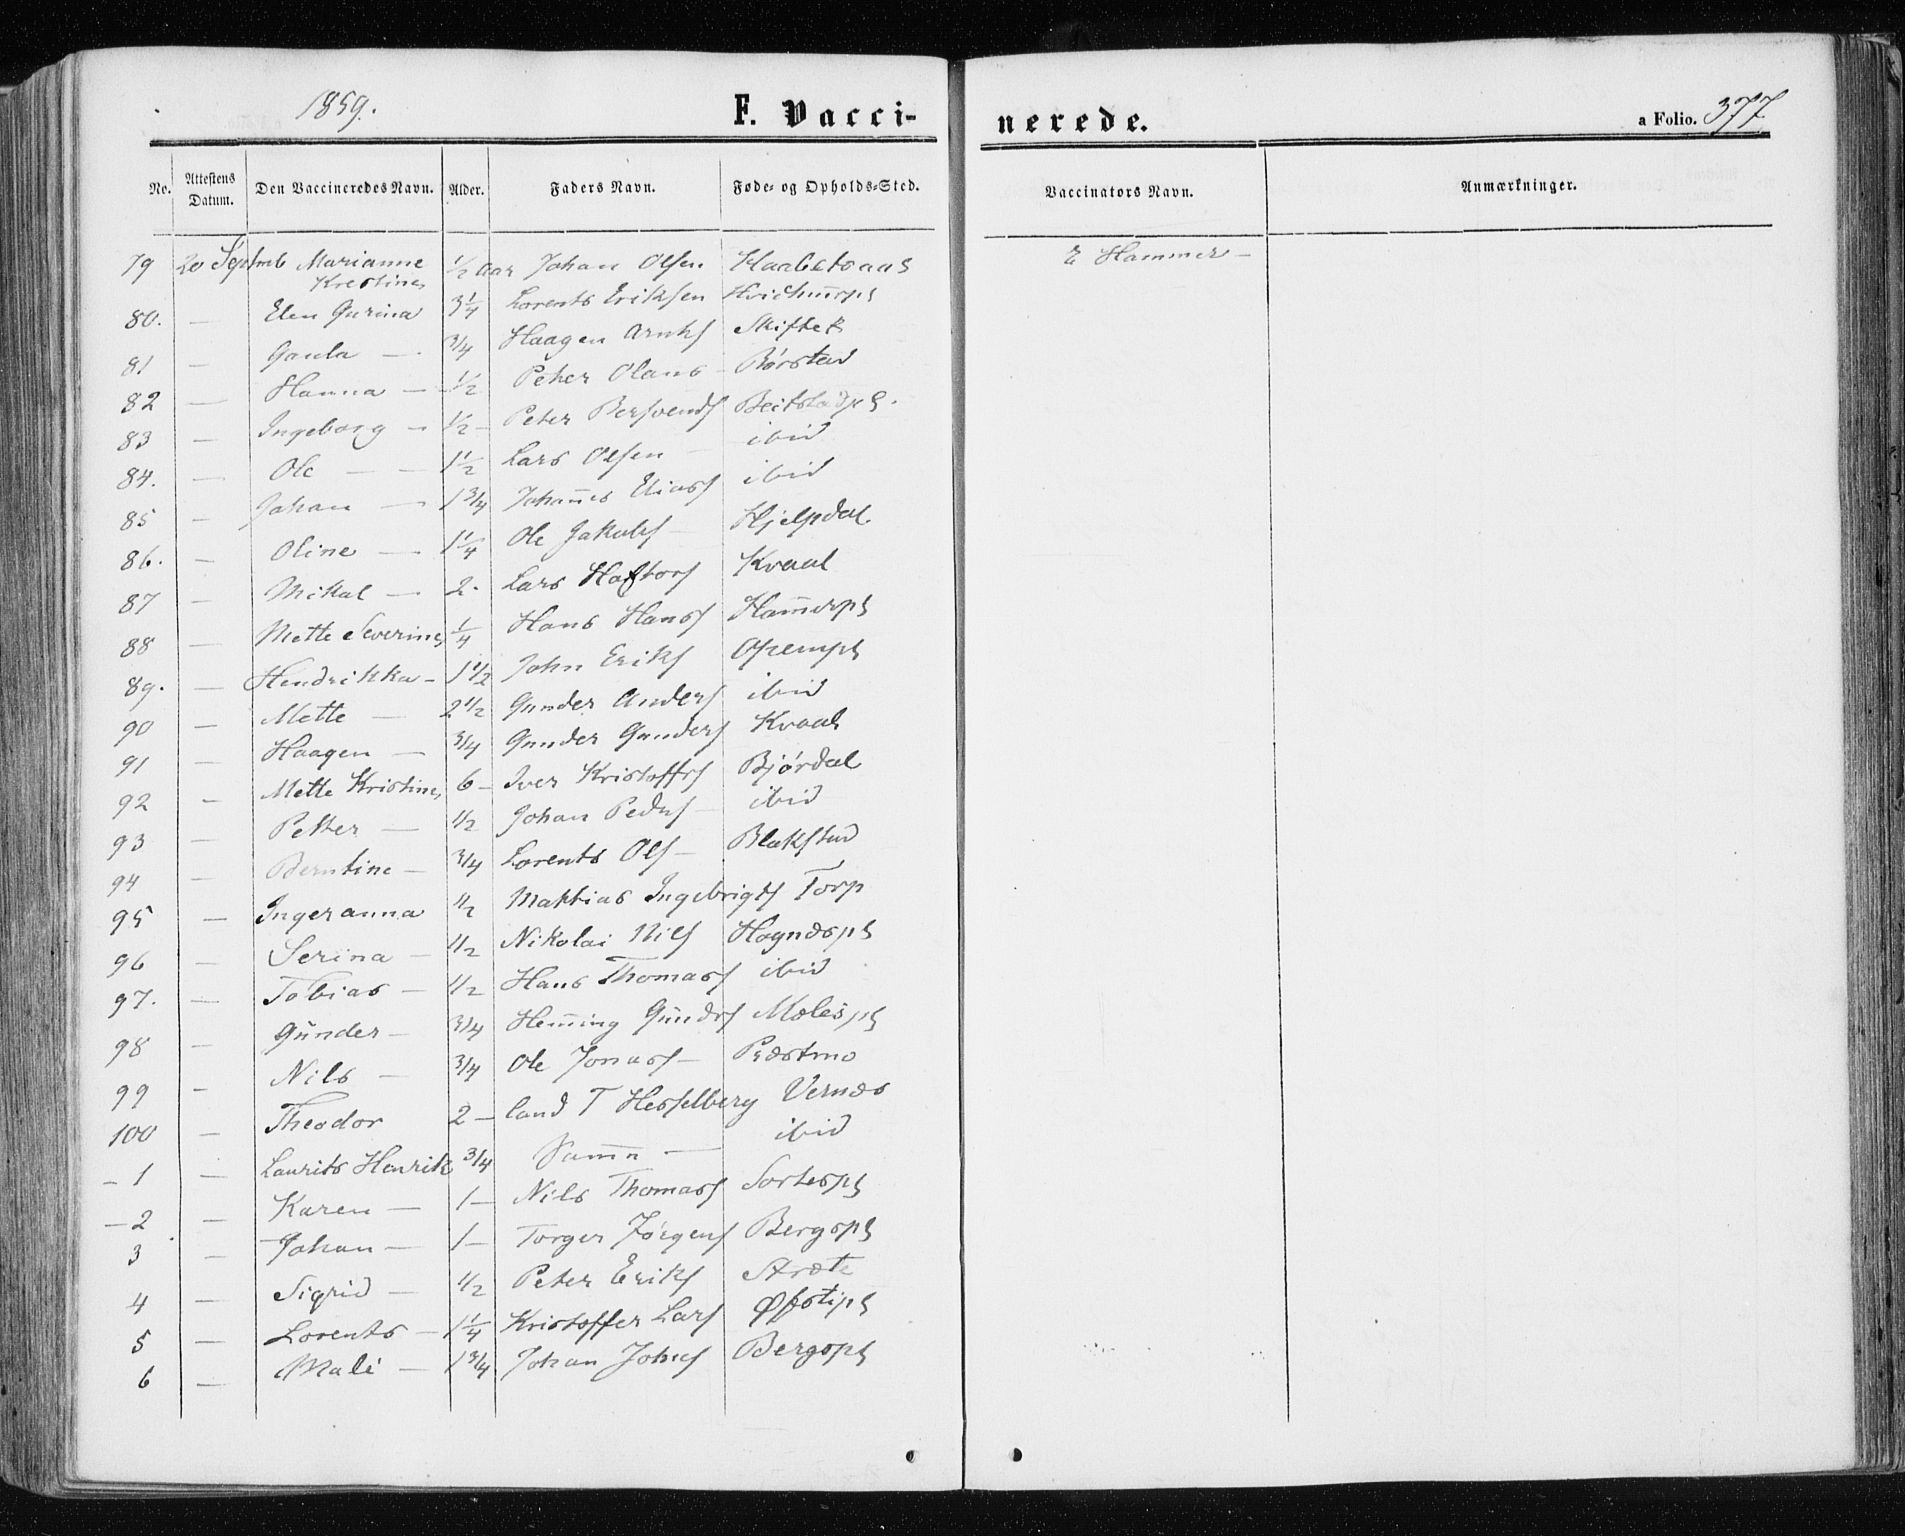 1859.
F. Vaccinerede.
a Folio. 377
No. Attestens Datum. Den Vaccineredes Navn. Alder. Faders Navn. Føde- og Opholds-Sted. Vaccinators Navn. Anmærkninger.
79 20 Septmb Marianne Krestine ½ Aar Johan Olsen E Hammer —
80. — Elen Gurina 3¼ Lorents Eriksen
81 — Gaula — ¾ Haagen Arntsf Skiftet
82 — Hanna — ½ Peter Olaus — Børstad
83 — Ingeborg — ½ — Peter Bersvendsf
84. — Ole — — 1½ Lars Olsen — ibid
85 — Johan — 1¾ Johan̄es Eliasf ibid
86. — Oline — 1¼ Ole Jakobsf — Hjelpdal
87 — Mikal — 2. Lars Haftorf Kvaal
88 — Mette Severine ¼ Hans Hansf Ham̄erpl
89. — Hendrikka — 1½ John Eriksf
90 — Mette — 2½ Gunder Andersf ibid
91 — Haagen — ¾ Gunder Gundersf Kvaal
92 — Mette Kristine 6 — Iver Kristoffrsf Bjørdal
93 — Petter — ½ Johan Pedersf — ibid
94 — Berntine — ¾ Lorents Olsf — Blakstad
95 — Ingeranna ½ Mathias Ingebrigtsf Torp
96 — Serina — ½ Nikolai Nilsf Hognæspl
97. — Tobias — ½ Hans Thomasf ibid
98 — Gunder — ¾ Hem̄ing Gundersf Molespl
99 — Nils — ¾ Ole Jonasf — Præstmo
100 — Theodor 2 — Cand T Hesselberg Vernæs
— 1 — Laurits Henrik ¾ Sam̄e — ibid
— 2 — Karen — 1 — Nils Thomasf Sortespl
3 — Johan — 1 — Torger Jørgensf Bergspl
4 — Sigrid — ½ Peter Eriksf Stræte
5 — Lorents — 1¼ Kristoffer Larsf Øfstipl
6 — Mali — 1¾ Johan Johnsf Bergspl